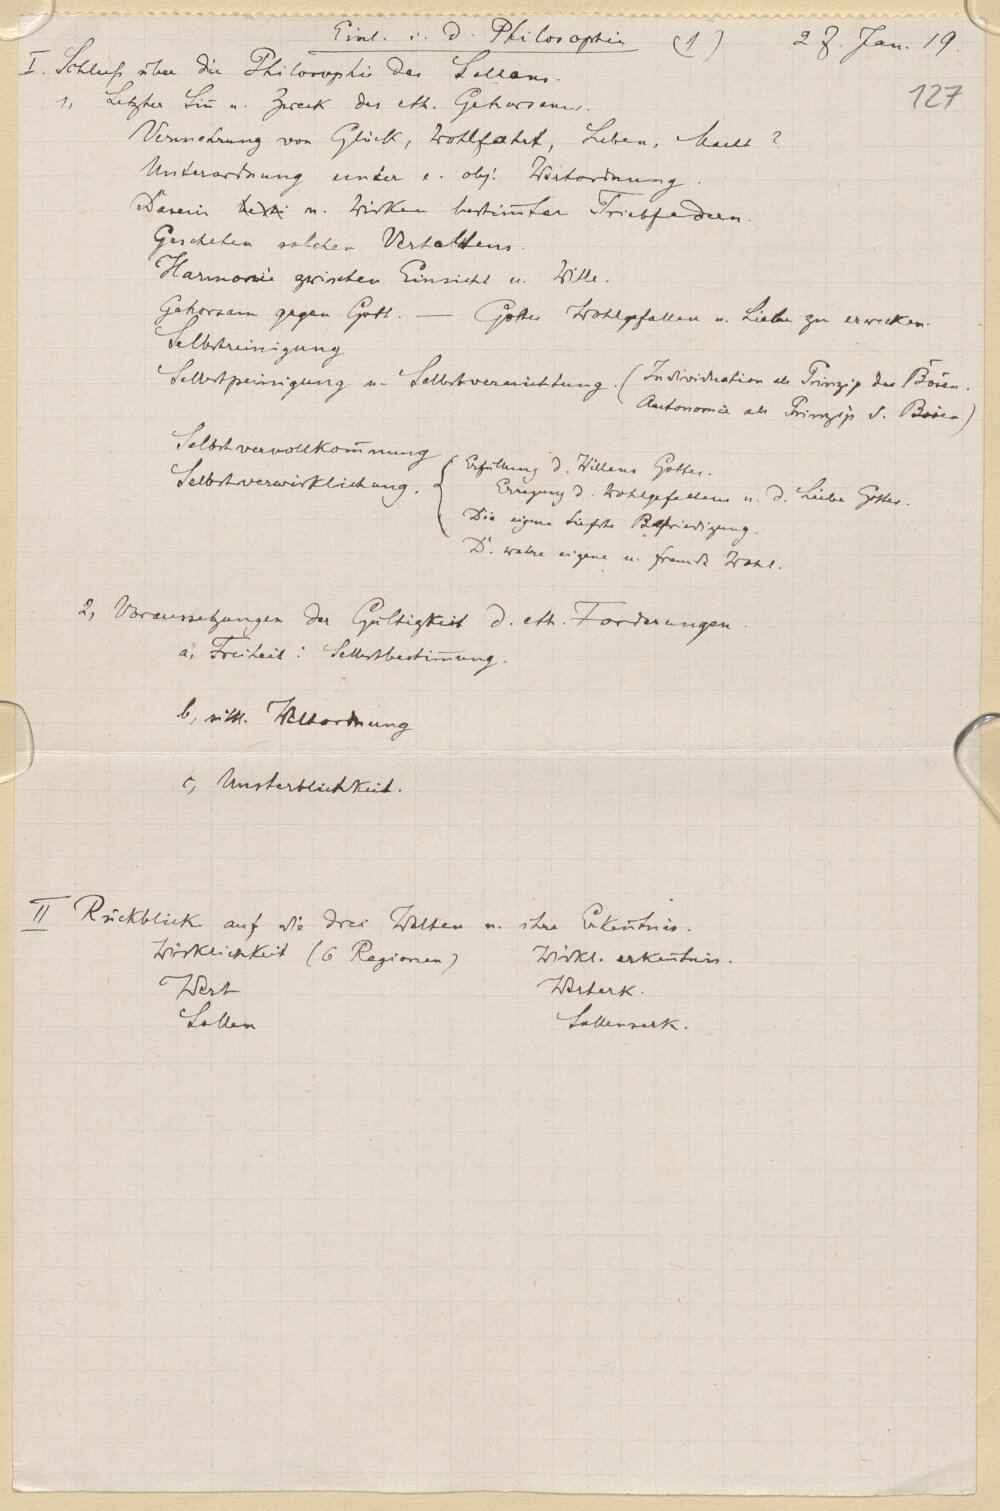 Einl. i. d. Philosophie (1) 28. Jan. 19.
127
I. Schluß über die Philosophie des Sollens.
1, Letzter Sin̅ u. Zweck des eth. Gehorsams.
Vermehrung von Glück, Wohlfahrt, Leben, Macht?
Unterordnung unter e. obj. Wertordnung.
Dasein u. Wirken bestim̅ter Triebfedern.
Geschehen solchen Verhaltens.
Harmonie zwischen Einsicht u. Wille.
Gehorsam gegen Gott. — Gottes Wohlgefallen u. Liebe zu erwecken.
Selbstreinigung
Selbstpeinigung u. Selbstvernichtung. (Individuation als Prinzip des Bösen.
Autonomie als Prinzip d. Bösen)
Selbstvervollkom̅nung
Selbstverwirklichung. { Erfüllung d. Willens Gottes.
Erregung d. Wohlgefallens u. d. Liebe Gottes.
Die eigene tiefste Befriedigung.
D. wahre eigene u. fremde Wohl.
2, Voraussetzungen der Gültigkeit d. eth. Forderungen.
a, Freiheit: Selbstbestim̅ung.
b, sittl. Weltordnung
c, Unsterblichkeit.
II Rückblick auf die drei Welten u. ihre Erken̅tnis.
Wirklichkeit (6 Regionen) Wirkl. erken̅tnis.
Wert Werterk.
Sollen Sollenserk.